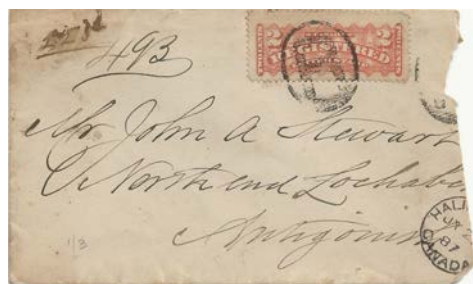 493
2 REGISTERED 2
Mr John A Stewart
North end Lochab
Antigonis
HALI
JA
87
CANADA
1/3